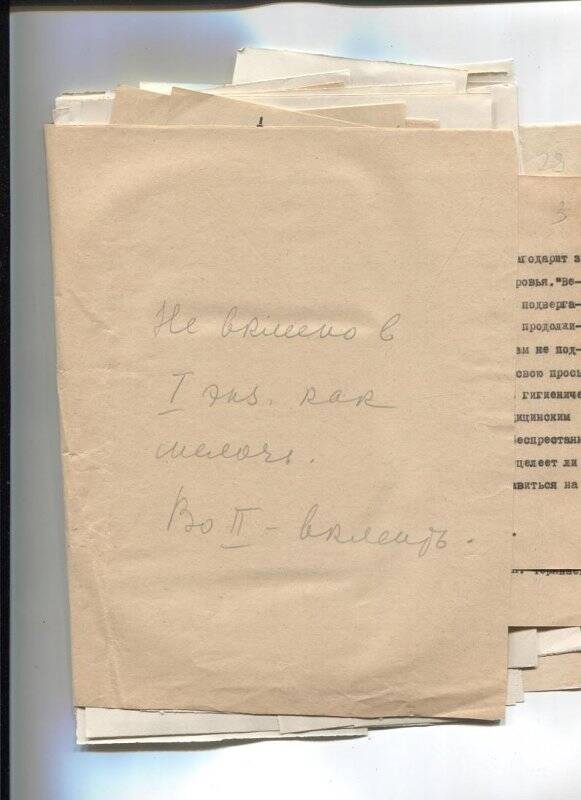 Не вклеено в
I экз. как
мелочь.
Во II – вклеить.
19
3
агодарит з
ровья. "Ве-
подверга-
продолжи-
зм не под-
свою прось
гигиениче
дицинским
беспрестанн
целеет ли
авиться на